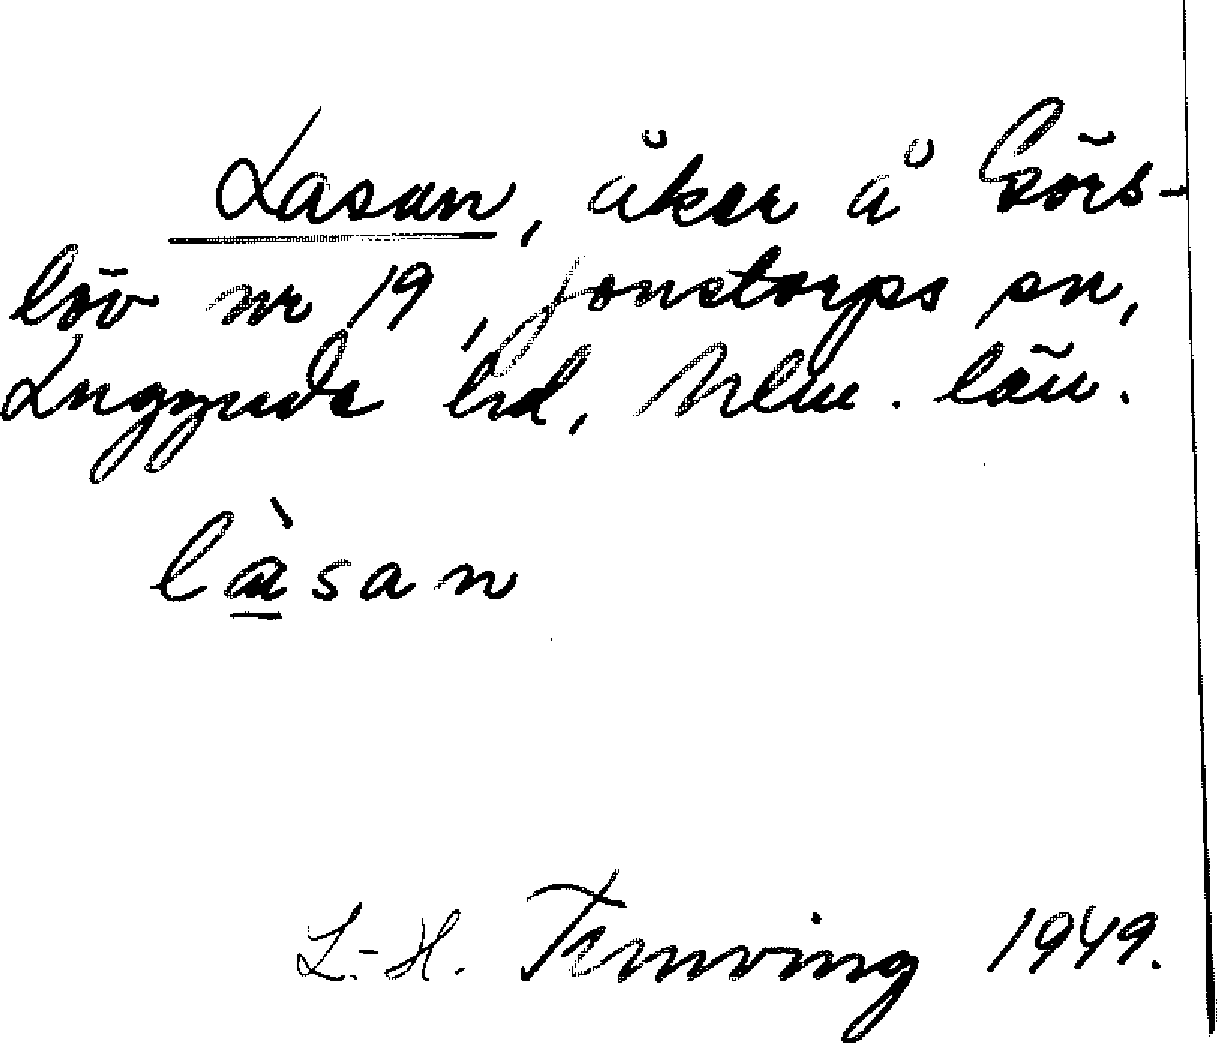 Lasan, åker å Görs-
löv nr 19, Jonstorps sn,
Luggude hd, Mlm. län.
làsan
L.-H. Fernving 1949.